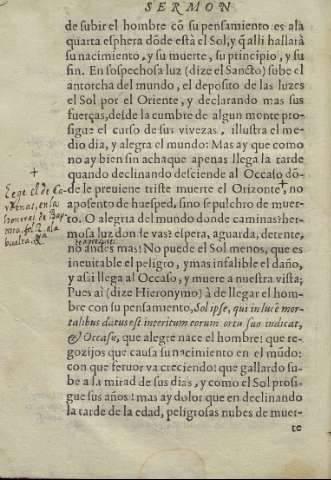 SERMON
de subir el hombre cõ su pensamiento es a la
quarta esphera dõde està el Sol; y q̃ alli hallarà
su nacimiento, y su muerte, su principio, y su
fin. En sospechosa luz (dize el Sancto) sube el
antorcha del mundo, el deposito de las luzes
el Sol por el Oriente, y declarando mas sus
fuerças, desde la cumbre de algun monte pro-
sigue el curso de sus vivezas, illustra el me-
dio dia, y alegra el mundo: Mas ay que como
no ay bien sin achaque apenas llega la tarde
quando declinando desciende al Occaso dõ-
de le preuiene triste muerte el Orizonte, no
aposento de huesped, sino sepulchro de muer-
to. O alegria del mundo donde caminas? her-
mosa luz donde vas? espera, aguarda, detente,
no andes mas: No puede el Sol menos, que es
ineuitable el peligro, y mas infalible el daño,
y assi llega al Occaso, y muere a nuestra vista;
Pues ai (dize Hieronymo) à de llegar el hom-
bre con su pensamiento, Sol ipse, qui in lucē mor-
talibus datus est interitum eorum ortu suo indicat,
& Occasu, que alegre nace el hombre! que re-
gozijos que causa su nacimiento en el mūdo:
con que feruor va creciendo! que gallardo su-
be a la mirad de sus dias, y como el Sol prosi-
gue sus años! mas ay dolor que en declinando
la tarde de la edad, peligrosas nubes de muer-
te
+
Lege el de
en la
fol. 2. a la
buelta. &